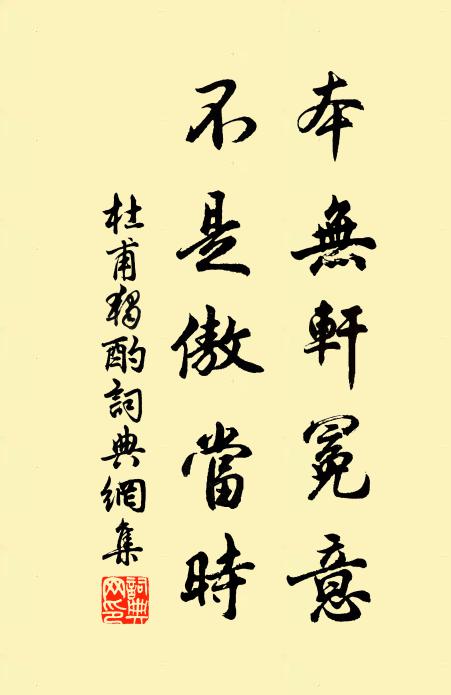 本無軒冕意
不是傲當時
杜甫獨酌詞典網集
詞典網印